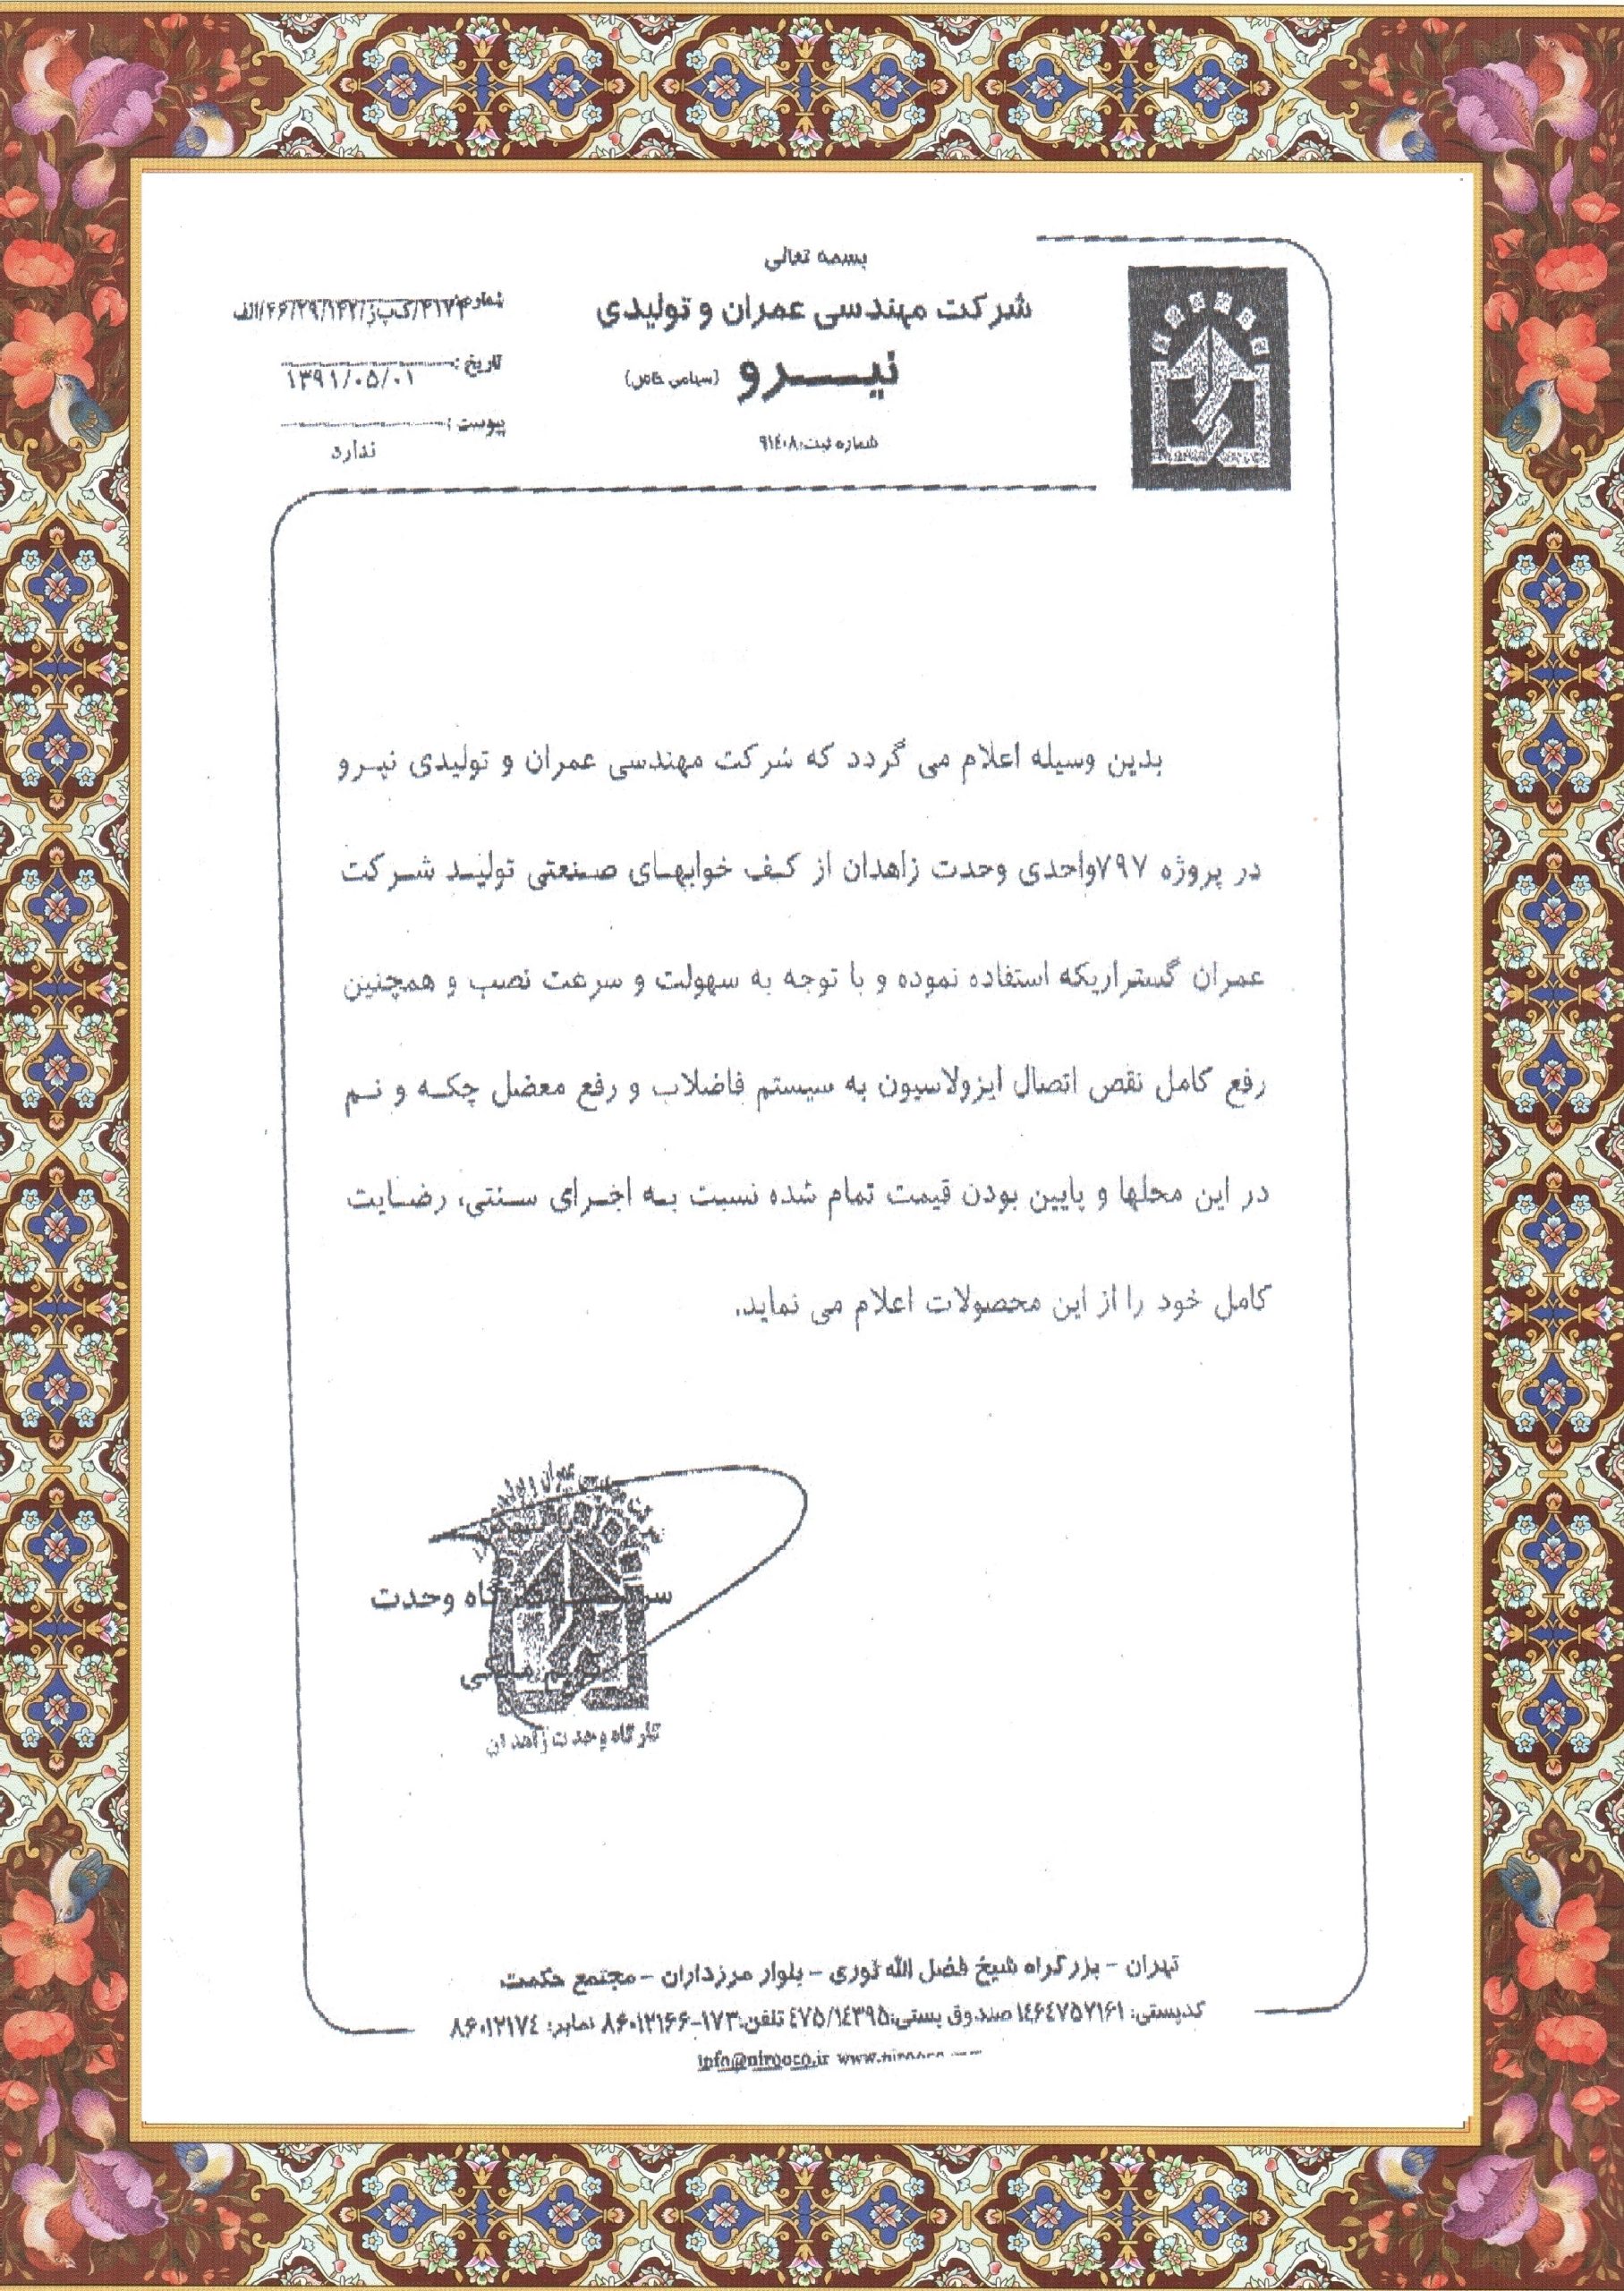 بسمه تعالی
شرکت مهندسی عمران و تولیدی
نیـــرو (سهامی خاص)
شماره ثبت: ۹۱۴۰۸
شماره: ۲۱۷۴/ک‌پ‌ز/۴۶/۲۹/۱۴۲/الف
تاریخ: ۱۳۹۱/۰۵/۰۱
پیوست: ندارد
بدین وسیله اعلام می گردد که شرکت مهندسی عمران و تولیدی نیرو
در پروژه ۷۹۷واحدی وحدت زاهدان از کف خوابهای صنعتی تولید شرکت
عمران گستراریکه استفاده نموده و با توجه به سهولت و سرعت نصب و همچنین
رفع کامل نقص اتصال ایزولاسیون به سیستم فاضلاب و رفع معضل چکه و نم
در این محلها و پایین بودن قیمت تمام شده نسبت به اجرای سنتی، رضایت
کامل خود را از این محصولات اعلام می نماید.
وحدت
کارگاه وحدت زاهدان
تهران - بزرگراه شیخ فضل الله نوری - بلوار مرزداران - مجتمع حکمت
کدپستی: ۱۴۶۴۷۵۷۱۶۱ صندوق پستی: ۴۷۵/۱۴۳۹۵ تلفن: ۱۷۳-۸۶۰۱۲۱۶۶ نمابر: ۸۶۰۱۲۱۷۴
info@nirooco.ir